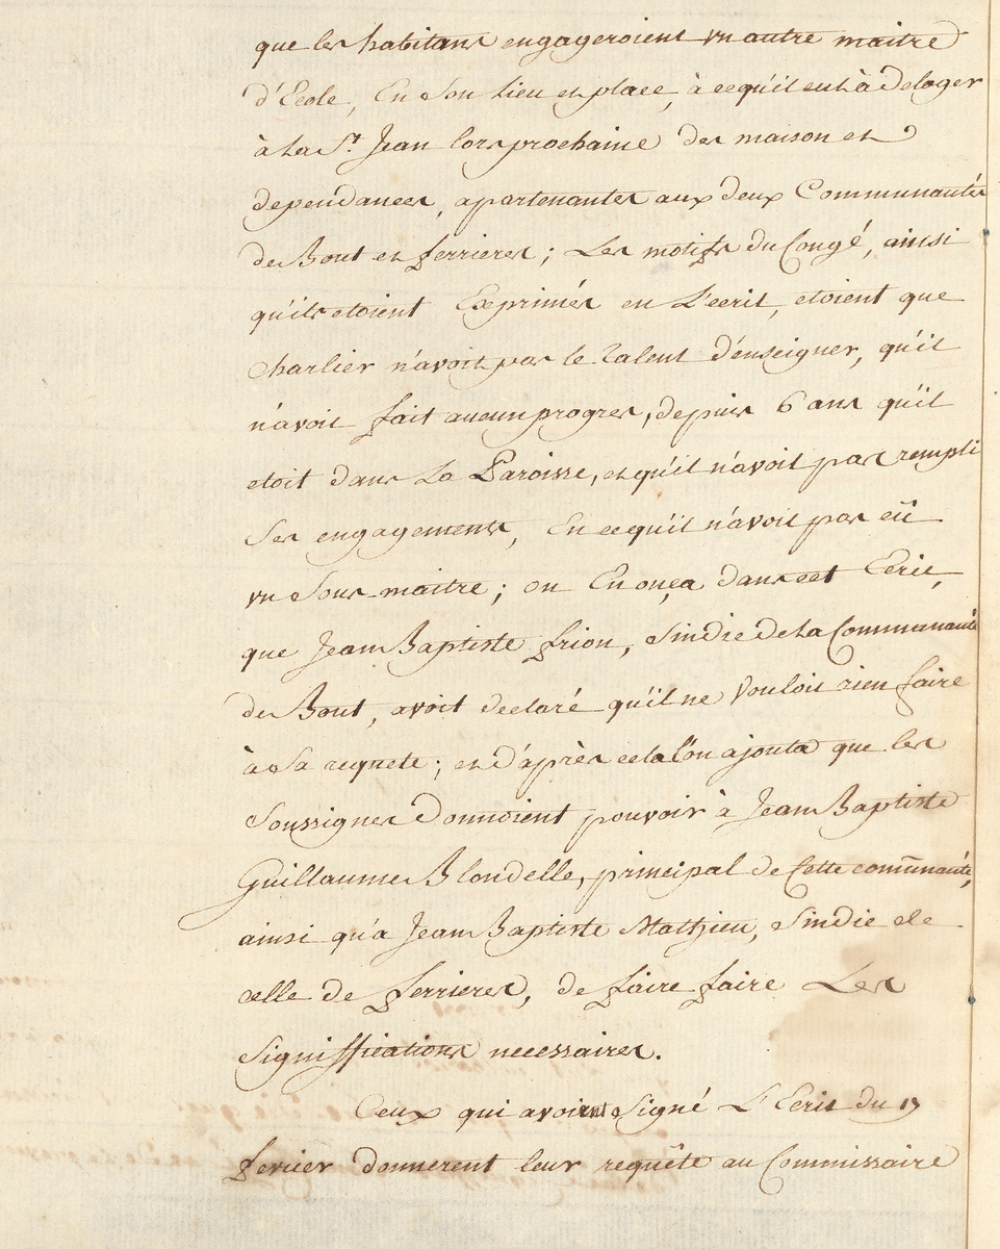 que les habitans engageroient un autre maitre
d'Ecole, En Son Lieu et place, à cequ'il eut à Deloger
à La St. Jean lors prochaine des maison et
dependances, apartenantes aux deux Communautés
de Bout et ferrieres; Les motifs du Congé, ainsi
qu'ils etoient Exprimés en L'ecrit, etoient que
Charlier n'avoit pas le Talent d'enseigner, qu'il
n'avoit fait aucun progres, depuis 6 ans qu'il
etoit dans La Paroisse, et qu'il n'avoit pas rempli
Ses engagements, En cequ'il n'avoit pas eû
un Sous-maitre; on Enonça dans cet Ecrit,
que Jean Baptiste frion, Sindic de La Communauté
de Bout, avoit declaré qu'il ne Vouloit rien faire
à Sa requete; et d'après cela l'on ajouta que les
Soussignes Donnoient pouvoir à Jean Baptiste
Guillaume Blondelle, principal de Cette com̄unauté,
ainsi qu'a Jean Baptiste Mathieu, Sindic de
celle de ferrieres, de faire faire Les
Signiffications necessaires.
Ceux qui avoient Signé L'Ecrit du 17
fevrier donnerent leur requête au Commissaire